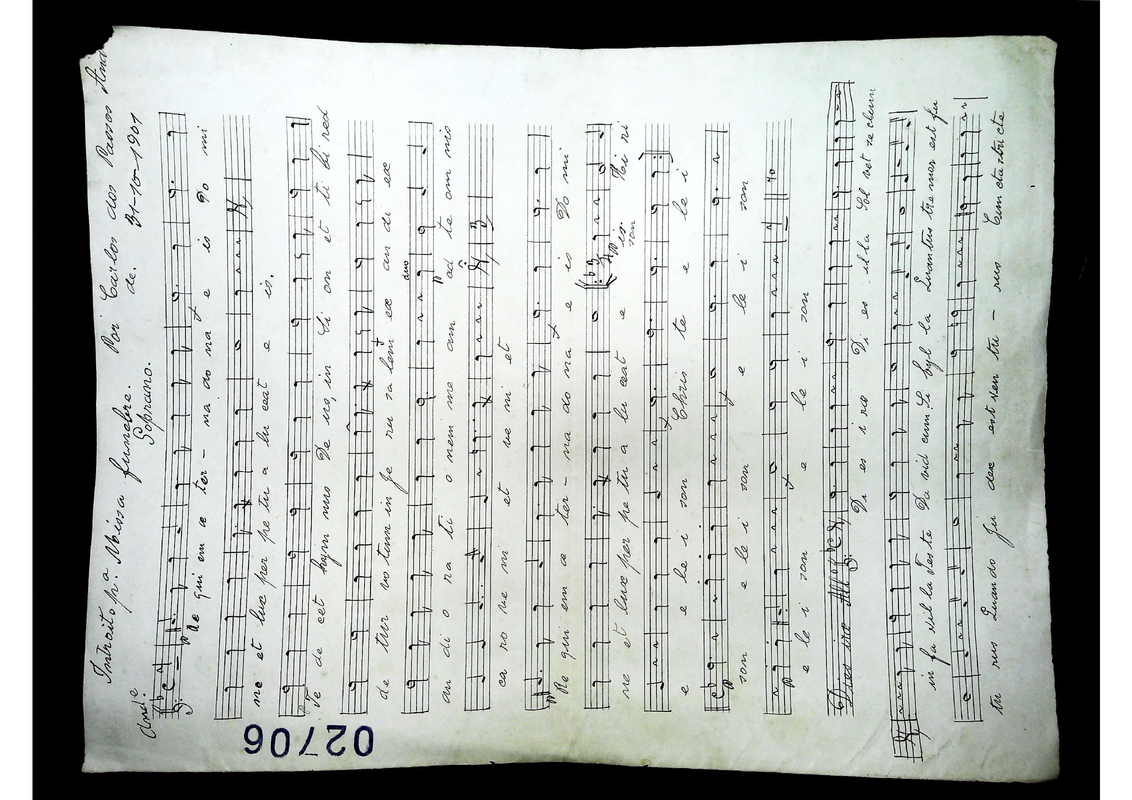 Introito pª. Missa funebre. Por Carlos dos Passos
Andᵉ Soprano. de. 31-10-1901
Re qui em æ ter - na do na e is Do mi
ne et lux per pe tu a lu ceat e is.
Te de cet hym nus De us, in Si on et ti bi red
de tur vo tum in Je ru sa lem ex au di ex
au di o ra ti o nem me am ad te om nis
ca ro ve ni et ve ni et
Re qui em æ ter - na do na e is Do mi
ne et lux per pe tu a lu ceat e is. Ki ri
e e le i son Chris te e le i
son e le i son e le i son
e le i son e le i son
Dies iræ Allº Di es i ræ Di es il la Sol vet
in fa vil la Teste Da vid cum Si byl la Quantus tre mor est fu
tu rus Quando ju dex est ven tu - rus Cuncta stricte
02706